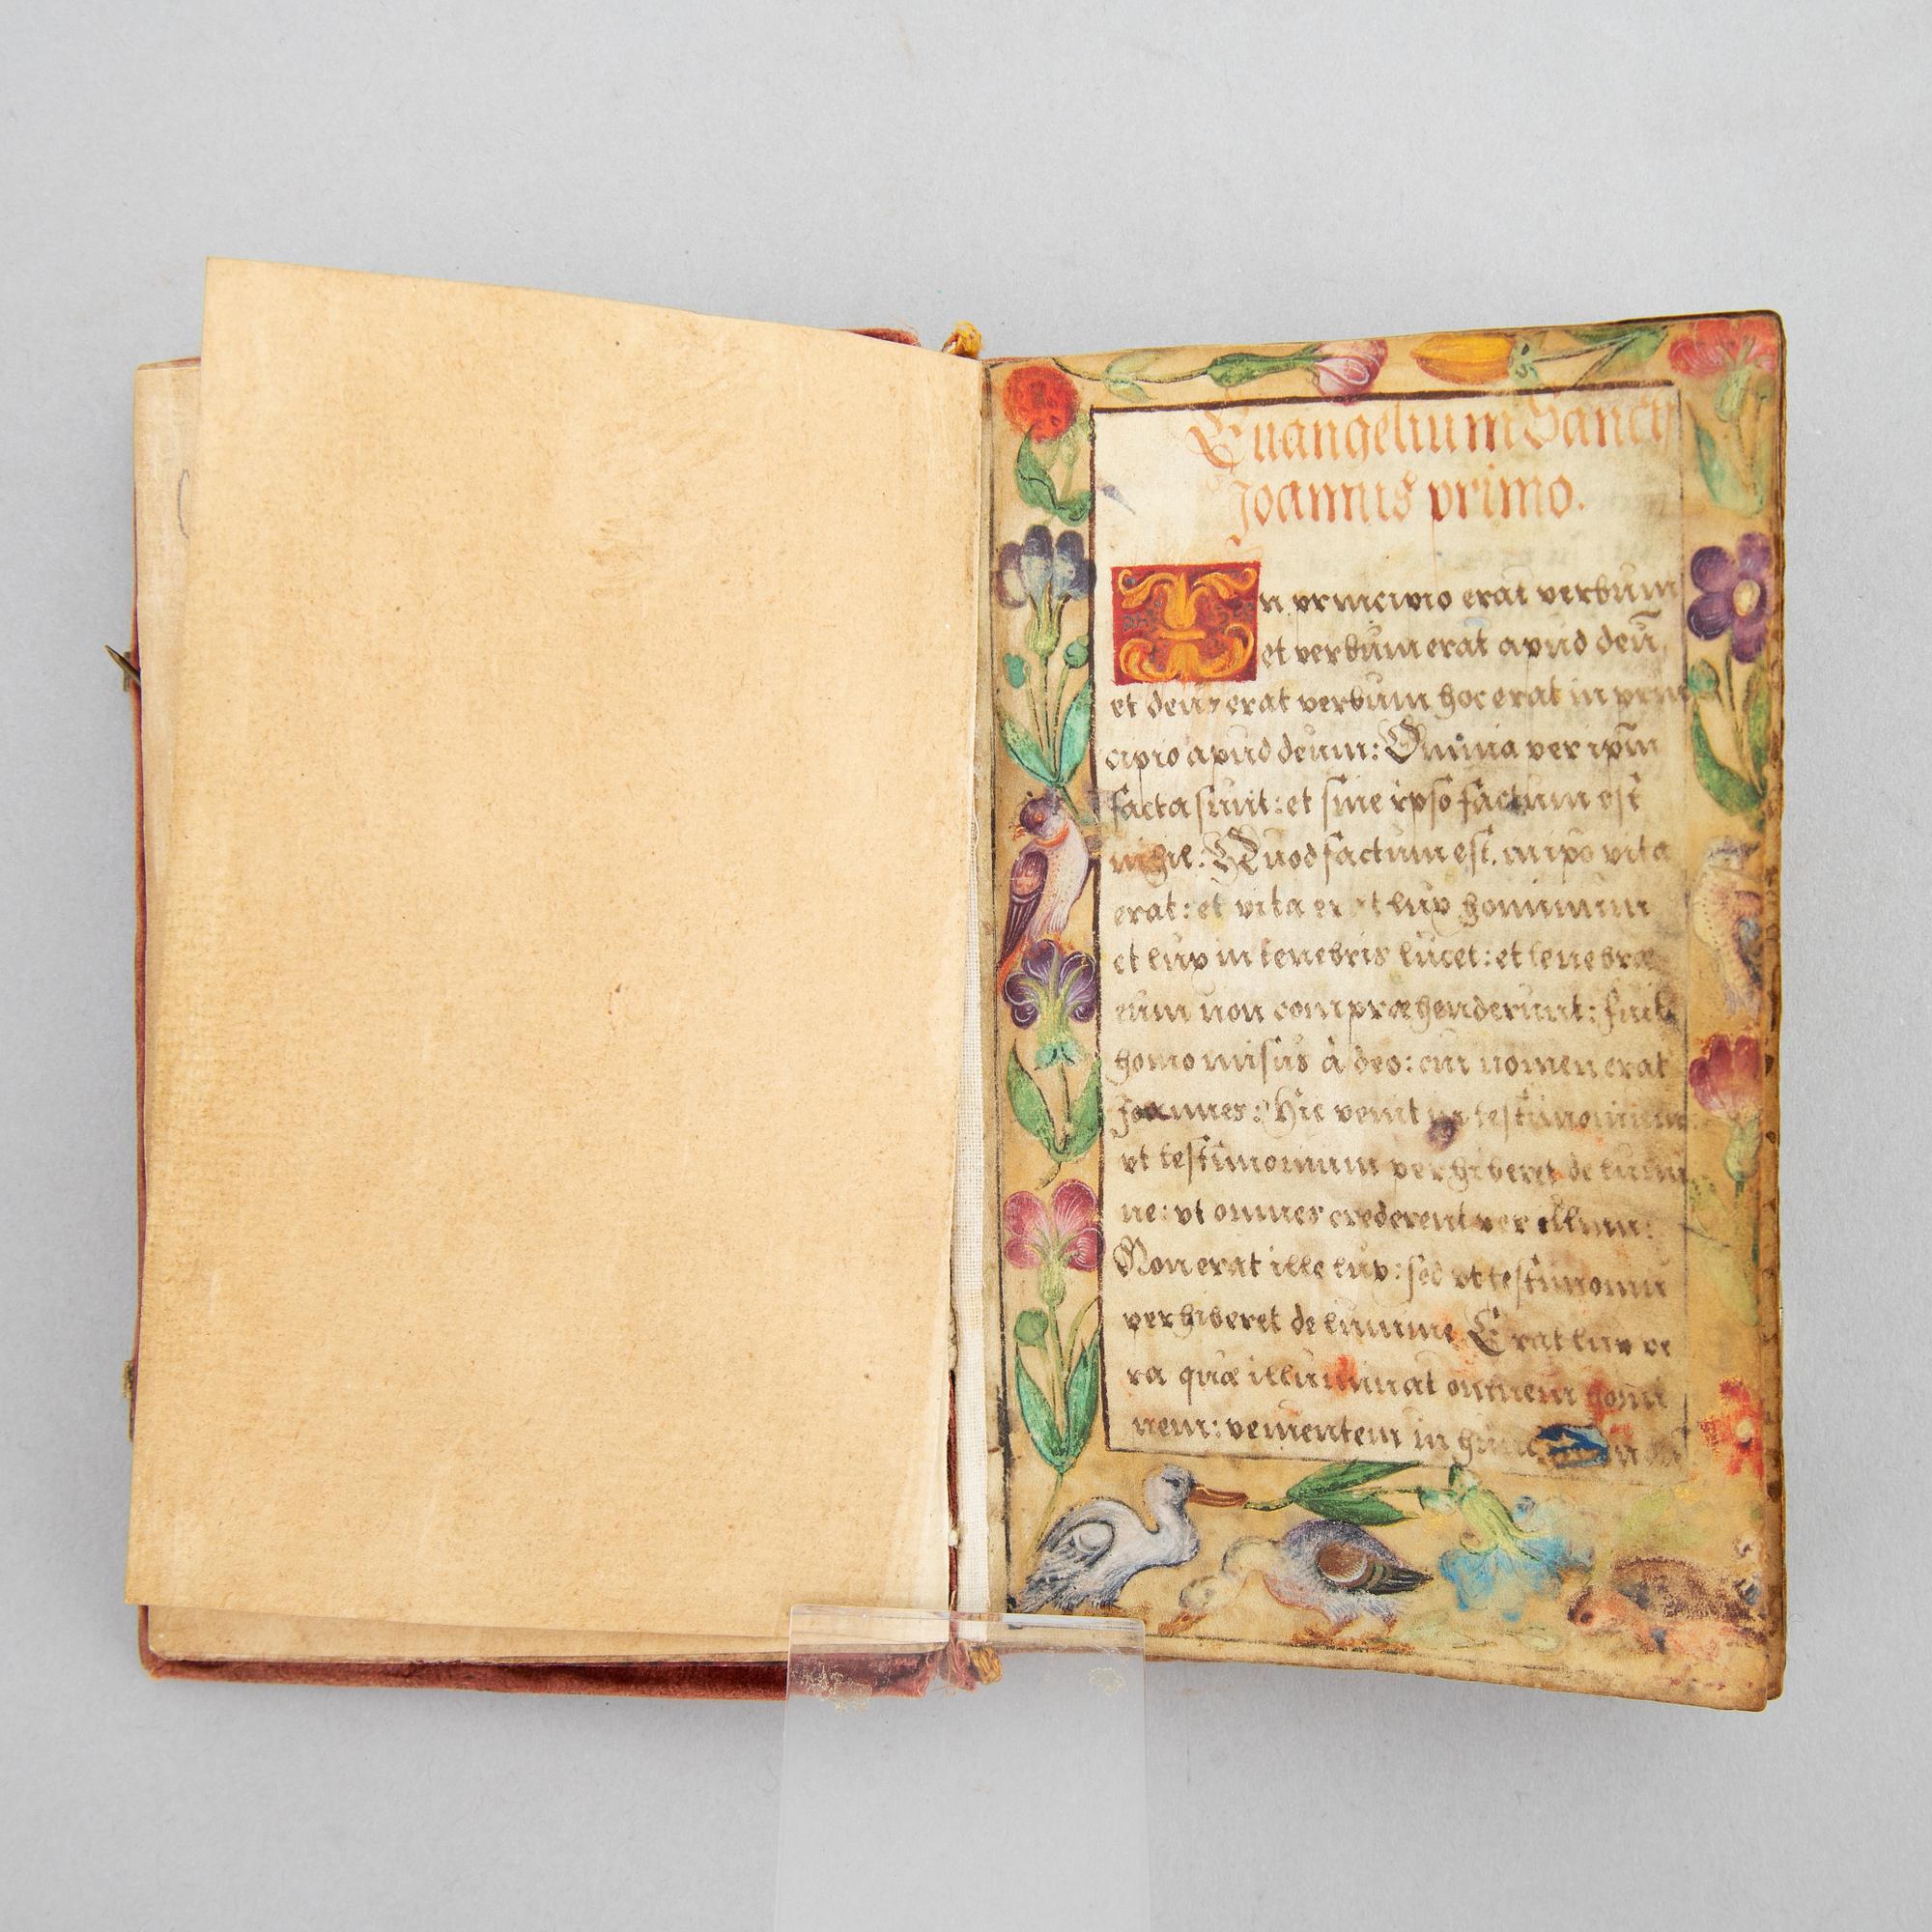 Euangelium Sancti
Joannis primo.
In principio erat verbum
et verbum erat apud deũ,
et deus erat verbum hoc erat in prin
cipio apud deum: Omnia per ipm̃
facta sunt: et sine ipso factum est
nihil: Quod factum est, in ipo vita
erat: et vita erat lux hominum
et lux in tenebris lucet: et tenebræ
eum non compræhenderunt: Fuit
homo missus à deo: cui nomen erat
Joannes: Hic venit in testimonium
vt testimonium perhiberet de lumi
ne: vt omnes crederent per illum:
Non erat ille lux: sed vt testimoniũ
perhiberet de lumine Erat lux ve
ra quæ illuminat omnem homi
nem: venientem in hunc